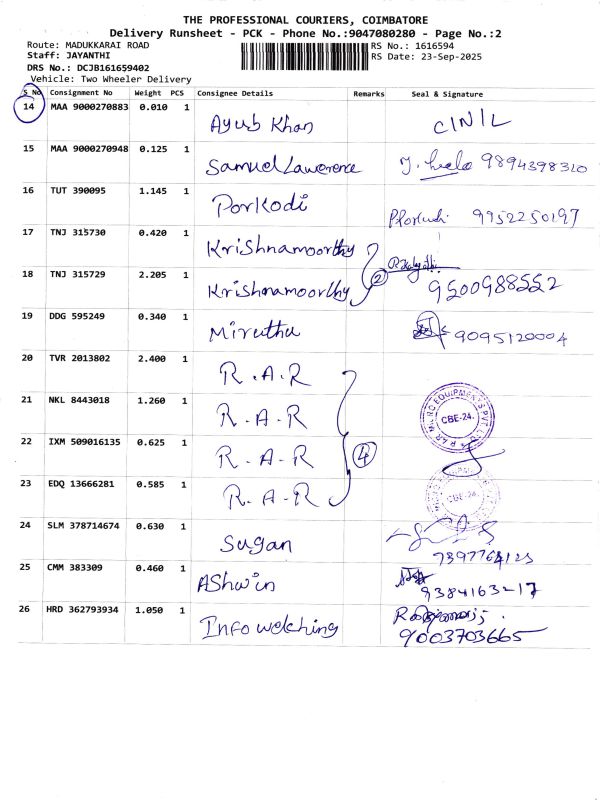 THE PROFESSIONAL COURIERS, COIMBATORE
Delivery Runsheet - PCK - Phone No.:9047080280 - Page No.:2
Route: MADUKKARAI ROAD
RS No.: 1616594
Staff: JAYANTHI
RS Date: 23-Sep-2025
DRS No.: DCJB161659402
Vehicle: Two Wheeler Delivery
S No Consignment No Weight PCS Consignee Details Remarks Seal & Signature
14 MAA 9000270883 0.010 1 Ayub Khan CINIL
15 MAA 9000270948 0.125 1 Samuel Lawerence 9894398310
16 TUT 390095 1.145 1 Porkodi 9952250197
17 TNJ 315730 0.420 1 Krishnamoorthy
18 TNJ 315729 2.205 1 Krishnamoorthy 2 9500988552
19 DDG 595249 0.340 1 Miruthu 9095120004
20 TVR 2013802 2.400 1 R.A.R
21 NKL 8443018 1.260 1 R.A.R CBE-24.
22 IXM 509016135 0.625 1 R.A.R 4
23 EDQ 13666281 0.585 1 R.A.R CBE-24.
24 SLM 378714674 0.630 1 Sugan 7397764123
25 CMM 383309 0.460 1 AShwin 9384163217
26 HRD 362793934 1.050 1 Info welching 9003703665